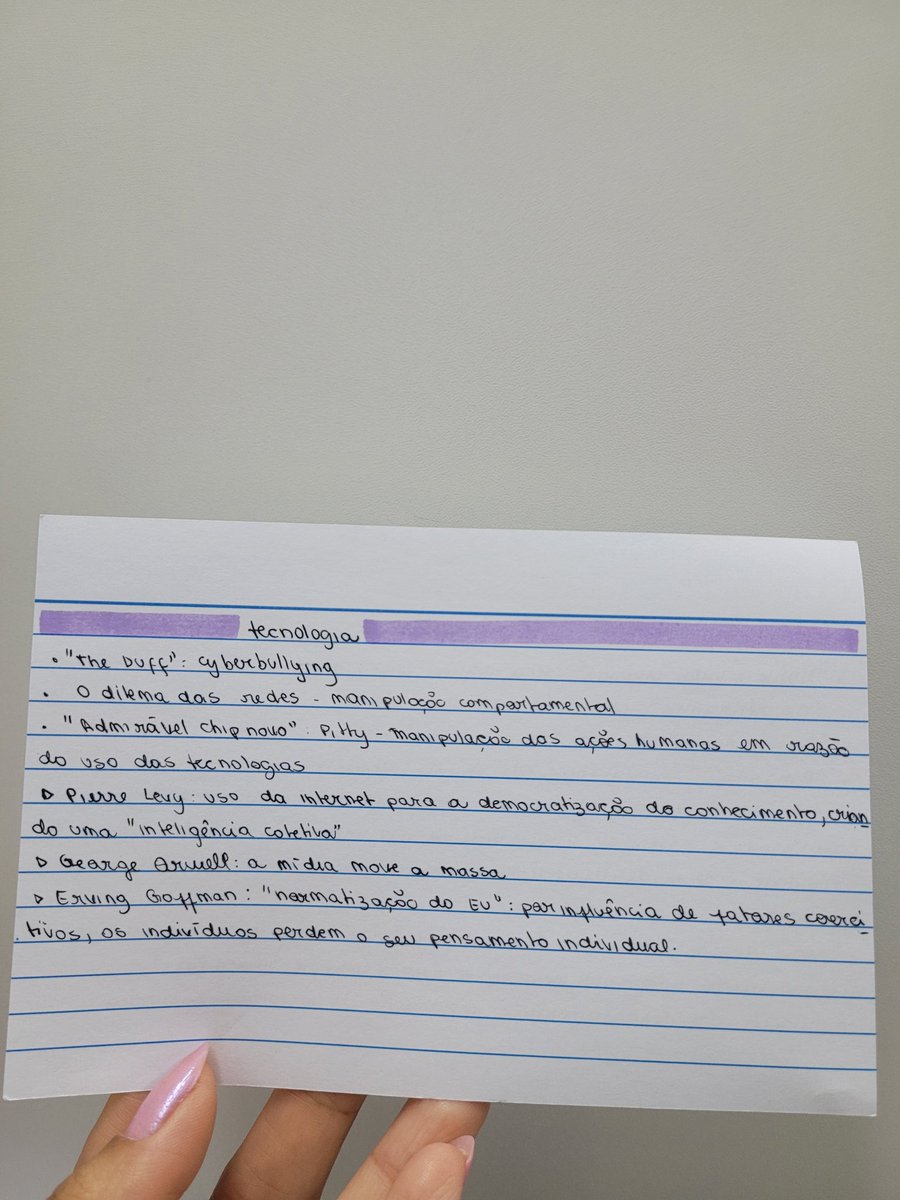 tecnologia
• "The Duff": cyberbullying
• O dilema das redes - manipulação comportamental
• "Admirável chip novo": Pitty - manipulação das ações humanas em razão
do uso das tecnologias
▷ Pierre Levy: uso da internet para a democratização do conhecimento, crian-
do uma "inteligência coletiva"
▷ George Orwell: a mídia move a massa
▷ Erving Goffman: "normatização do EU": por influência de fatores coerci-
tivos, os indivíduos perdem o seu pensamento individual.